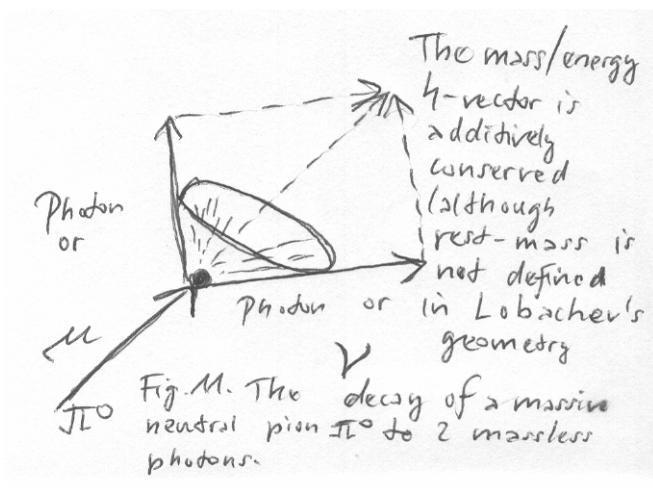 The mass/energy
4-vector is
additively
conserved
(although
rest-mass is
not defined
in Lobachev's
geometry
Photon
or
Photon or
μ
ν
π⁰
Fig. M. The decay of a massive
neutral pion π⁰ to 2 massless
photons.